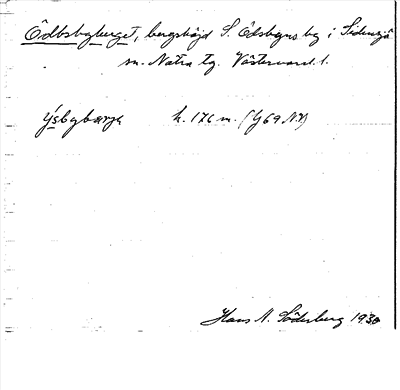 Ödbsbyberget, bergshöjd S. Ödsbyns by i Sidensjö
sn. Nätra tg. Västernorrl. l.
ýsbybærje h. 176 m. (
Hans N. Söderberg 1930